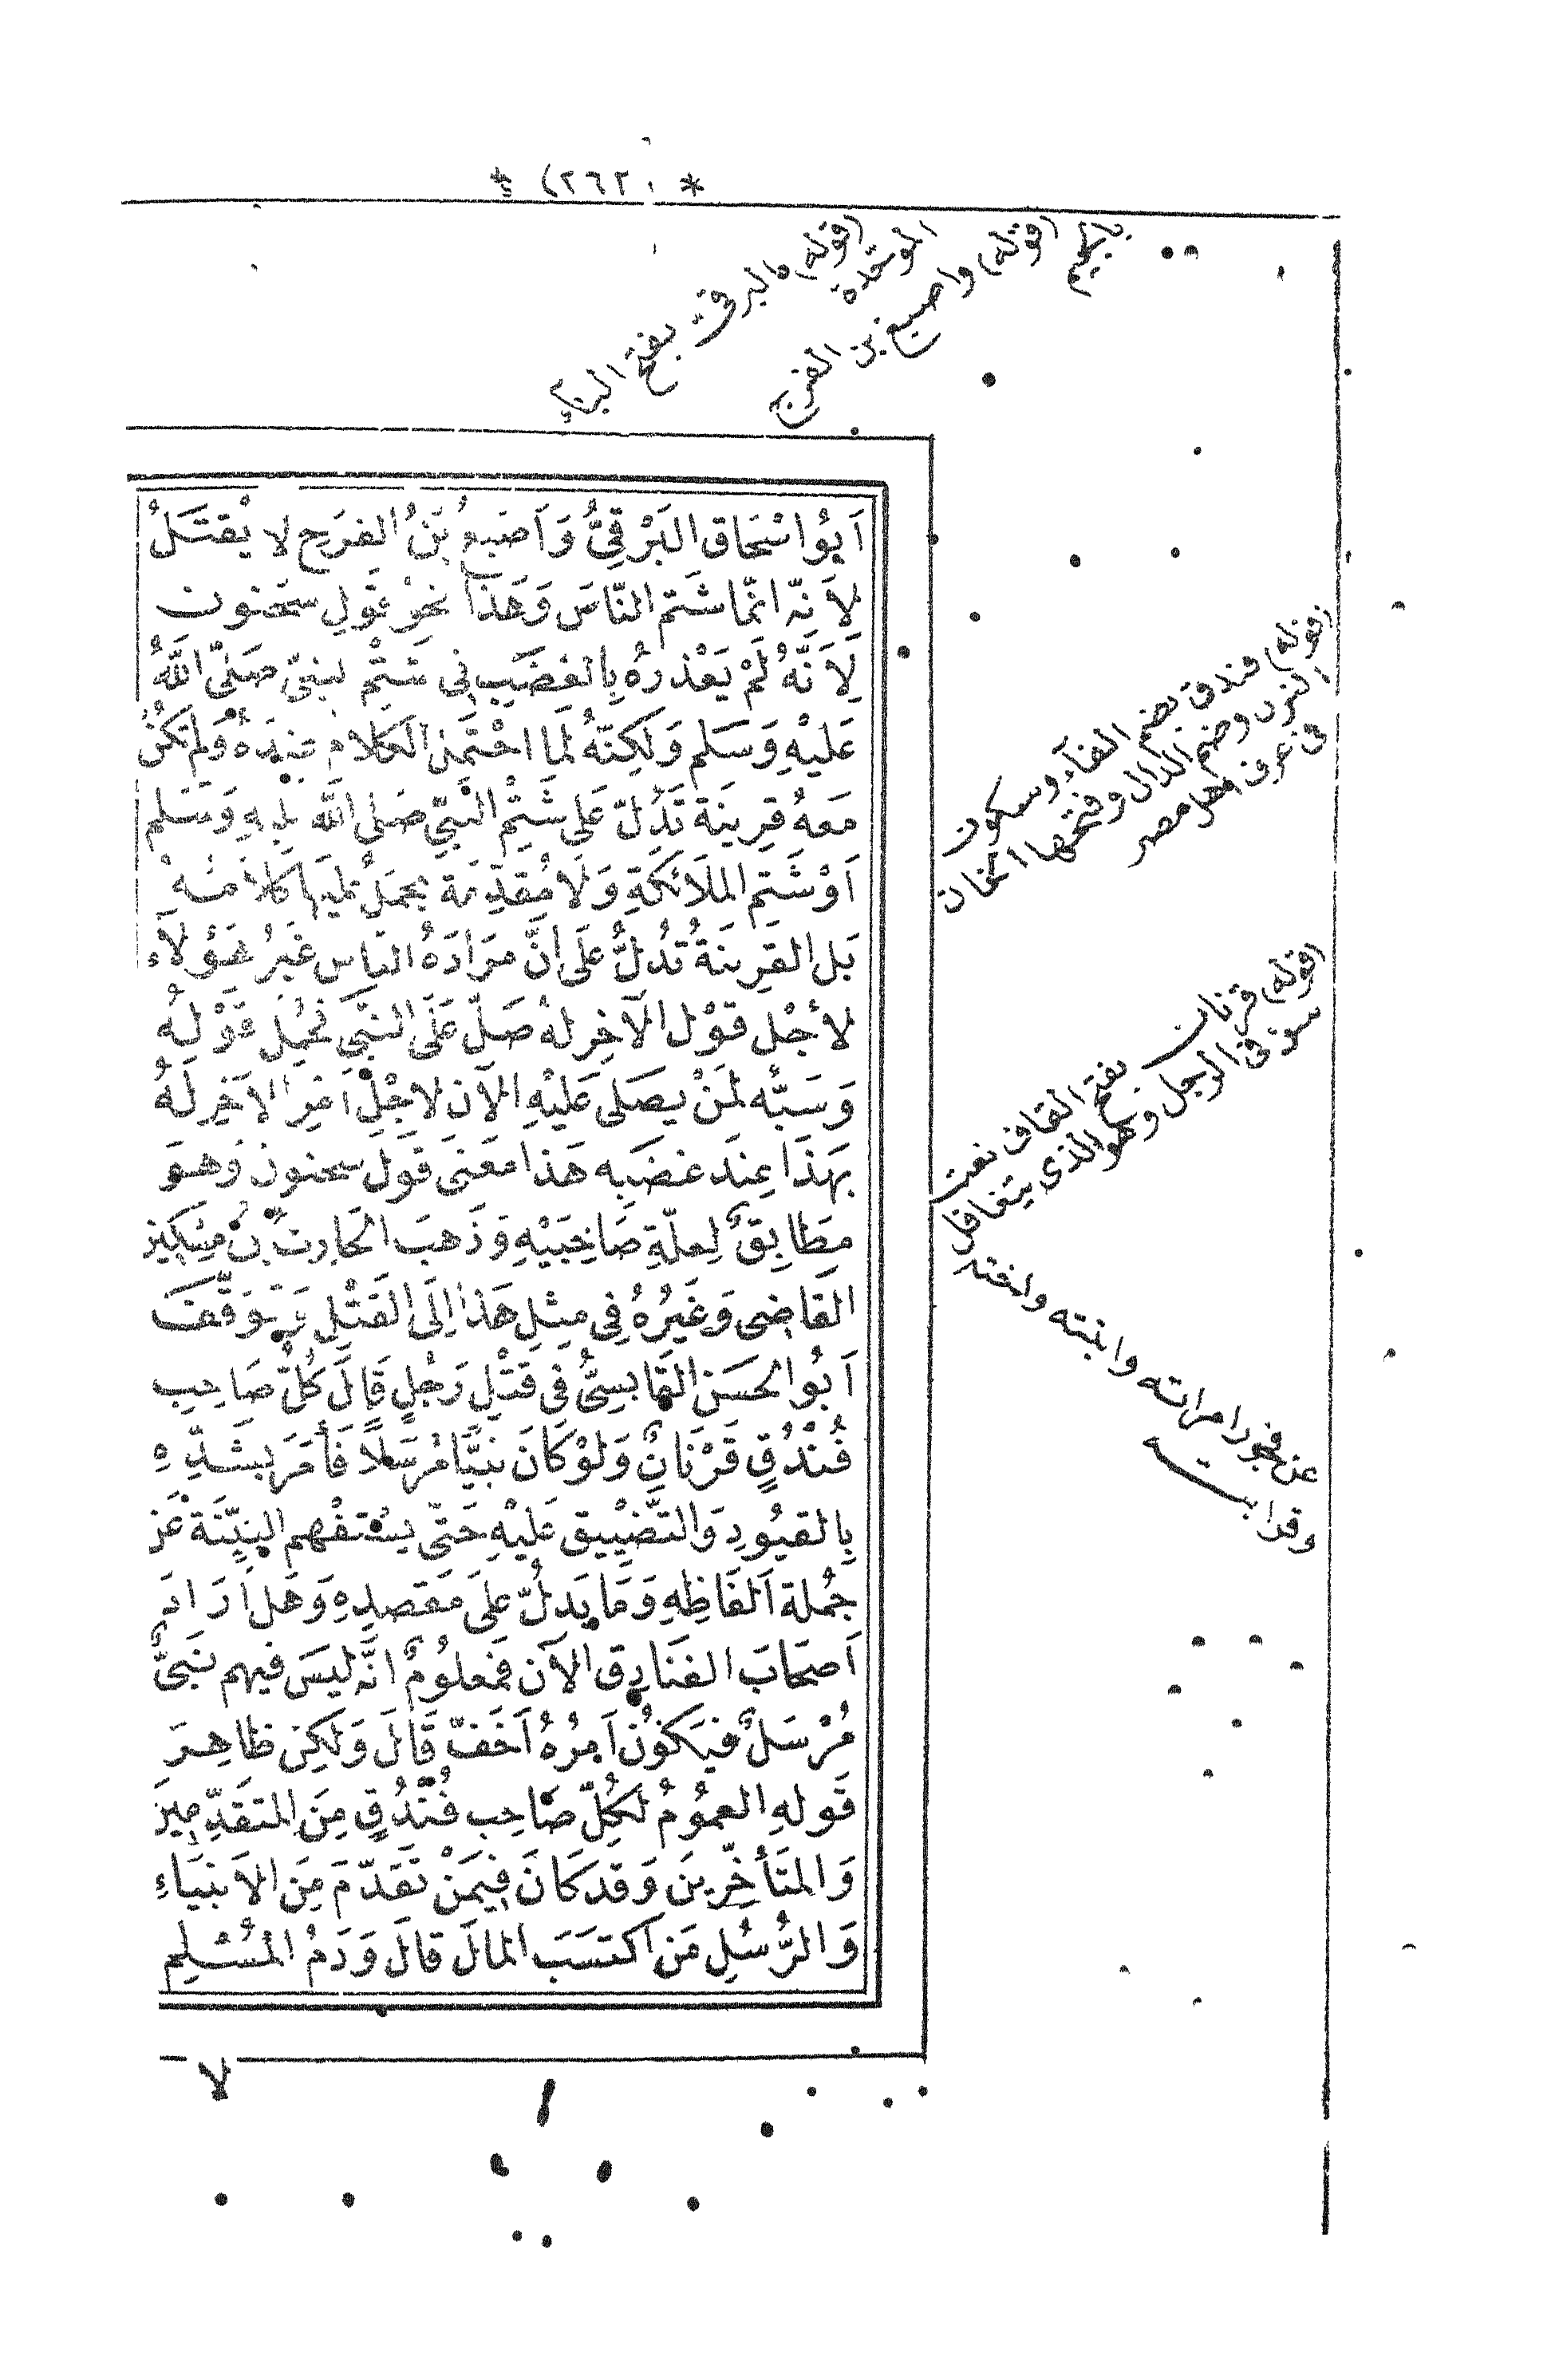 * (٢٦٢) *
(قوله) والبرقى بفتح الباء
الموحدة
(قوله) واصبغ بن الفرج
بالجيم
اَبُو اسْحَاق البَرْقِىُّ وَاَصْبَغُ بْنُ الفَرَج لا يُقتَلُ
لاَنّه انّما شَتم النّاسَ وَهَذَا نَحْوُ قَولِ سَحْنون
لِاَنَّهُ لَمْ يَعْذرهُ بِالغَضَبِ فى شَتْمِ النبىّ صَلىّ اللَّهُ
عَليْهِ وَسَلم وَلكِنّهُ لمَا احْتَمَلَ الكلام عِنْدَهُ وَلَم تكُنْ
مَعهُ قرِينَة تَدُلّ عَلى شَتْم النَّبىّ صَلى اللَّه عليهِ وَسَلم
اَوْ شَتم الملاَئكَةِ وَلاَ مُقدِّمَة يحمَلُ عَليهَا كلاَمُهُ
بَل القَرِينَةُ تدُلُّ عَلى انَّ مرَادَهُ النّاس غَيرُ هَؤلاَءِ
لاَجْل قوْل الآخِر لهُ صَلّ عَلَى النَّبَى فحُمِل قَوْلهُ
وَسَبُّه لمَنْ يصَلى عَليْهِ الآن لاجْل اَمْر الآخِر لَهُ
بِهَذَا عِندَ غضَبِه هَذا مَعْنَى قَول سحنون وَهوَ
مطَابِقٌ لِعلّةِ صَاحِبَيْهِ وَذَهبَ الحَارِث بْن مِسْكِين
القَاضِى وَغَيْرُهُ فِى مثِل هَذا اِلَى القَتْلِ وَتوَقّفَ
اَبُو الحَسَن القَابِسىُّ فى قتْلِ رَجُلٍ قَالَ كُلّ صَاحِب
فُنْدُقٍ قَرْنَانٌ وَلَوْ كَانَ نَبيًّا مُرْسَلاً فَأمَرَ بشَدِّهِ
بِالقيُودِ وَالتَّضْيِيق عَليْهِ حَتّى يستفْهم البَيِّنَة عَن
جُملة اَلفَاظِهِ وَمَا يَدلُّ علَى مَقصدِهِ وَهَل اَرَادَ
اَصحَابَ الفنَادِق الآن فَمَعلومٌ انَّه ليسَ فيهم نَبىٌّ
مُرْسَلٌ فيَكُونُ اَمرُهُ اَخَفّ قَالَ وَلَكِن ظاهِرَ
قَولهِ العمومُ لكُلّ صَاحِب فُنْدُقٍ مِنَ المتقَدِّمِينَ
وَالمتَأخِّرِينَ وَقد كَانَ فيمَنْ تقَدّمَ مِنَ الاَنبيَاءِ
وَالرُّسُلِ مَن اَكتسَبَ المالَ قالَ وَدَمُ المُسْلِمِ
(قوله) فندق بضم الفآء وسكون
النون وضم الدال وفتحها الخان
فى عرف اهل مصر
(قوله) قرنان بفتح القاف نعت
سوء فى الرجل وهو الذى يتغافل
عن فجور امراته وابنته واخته
وقرابته
لا